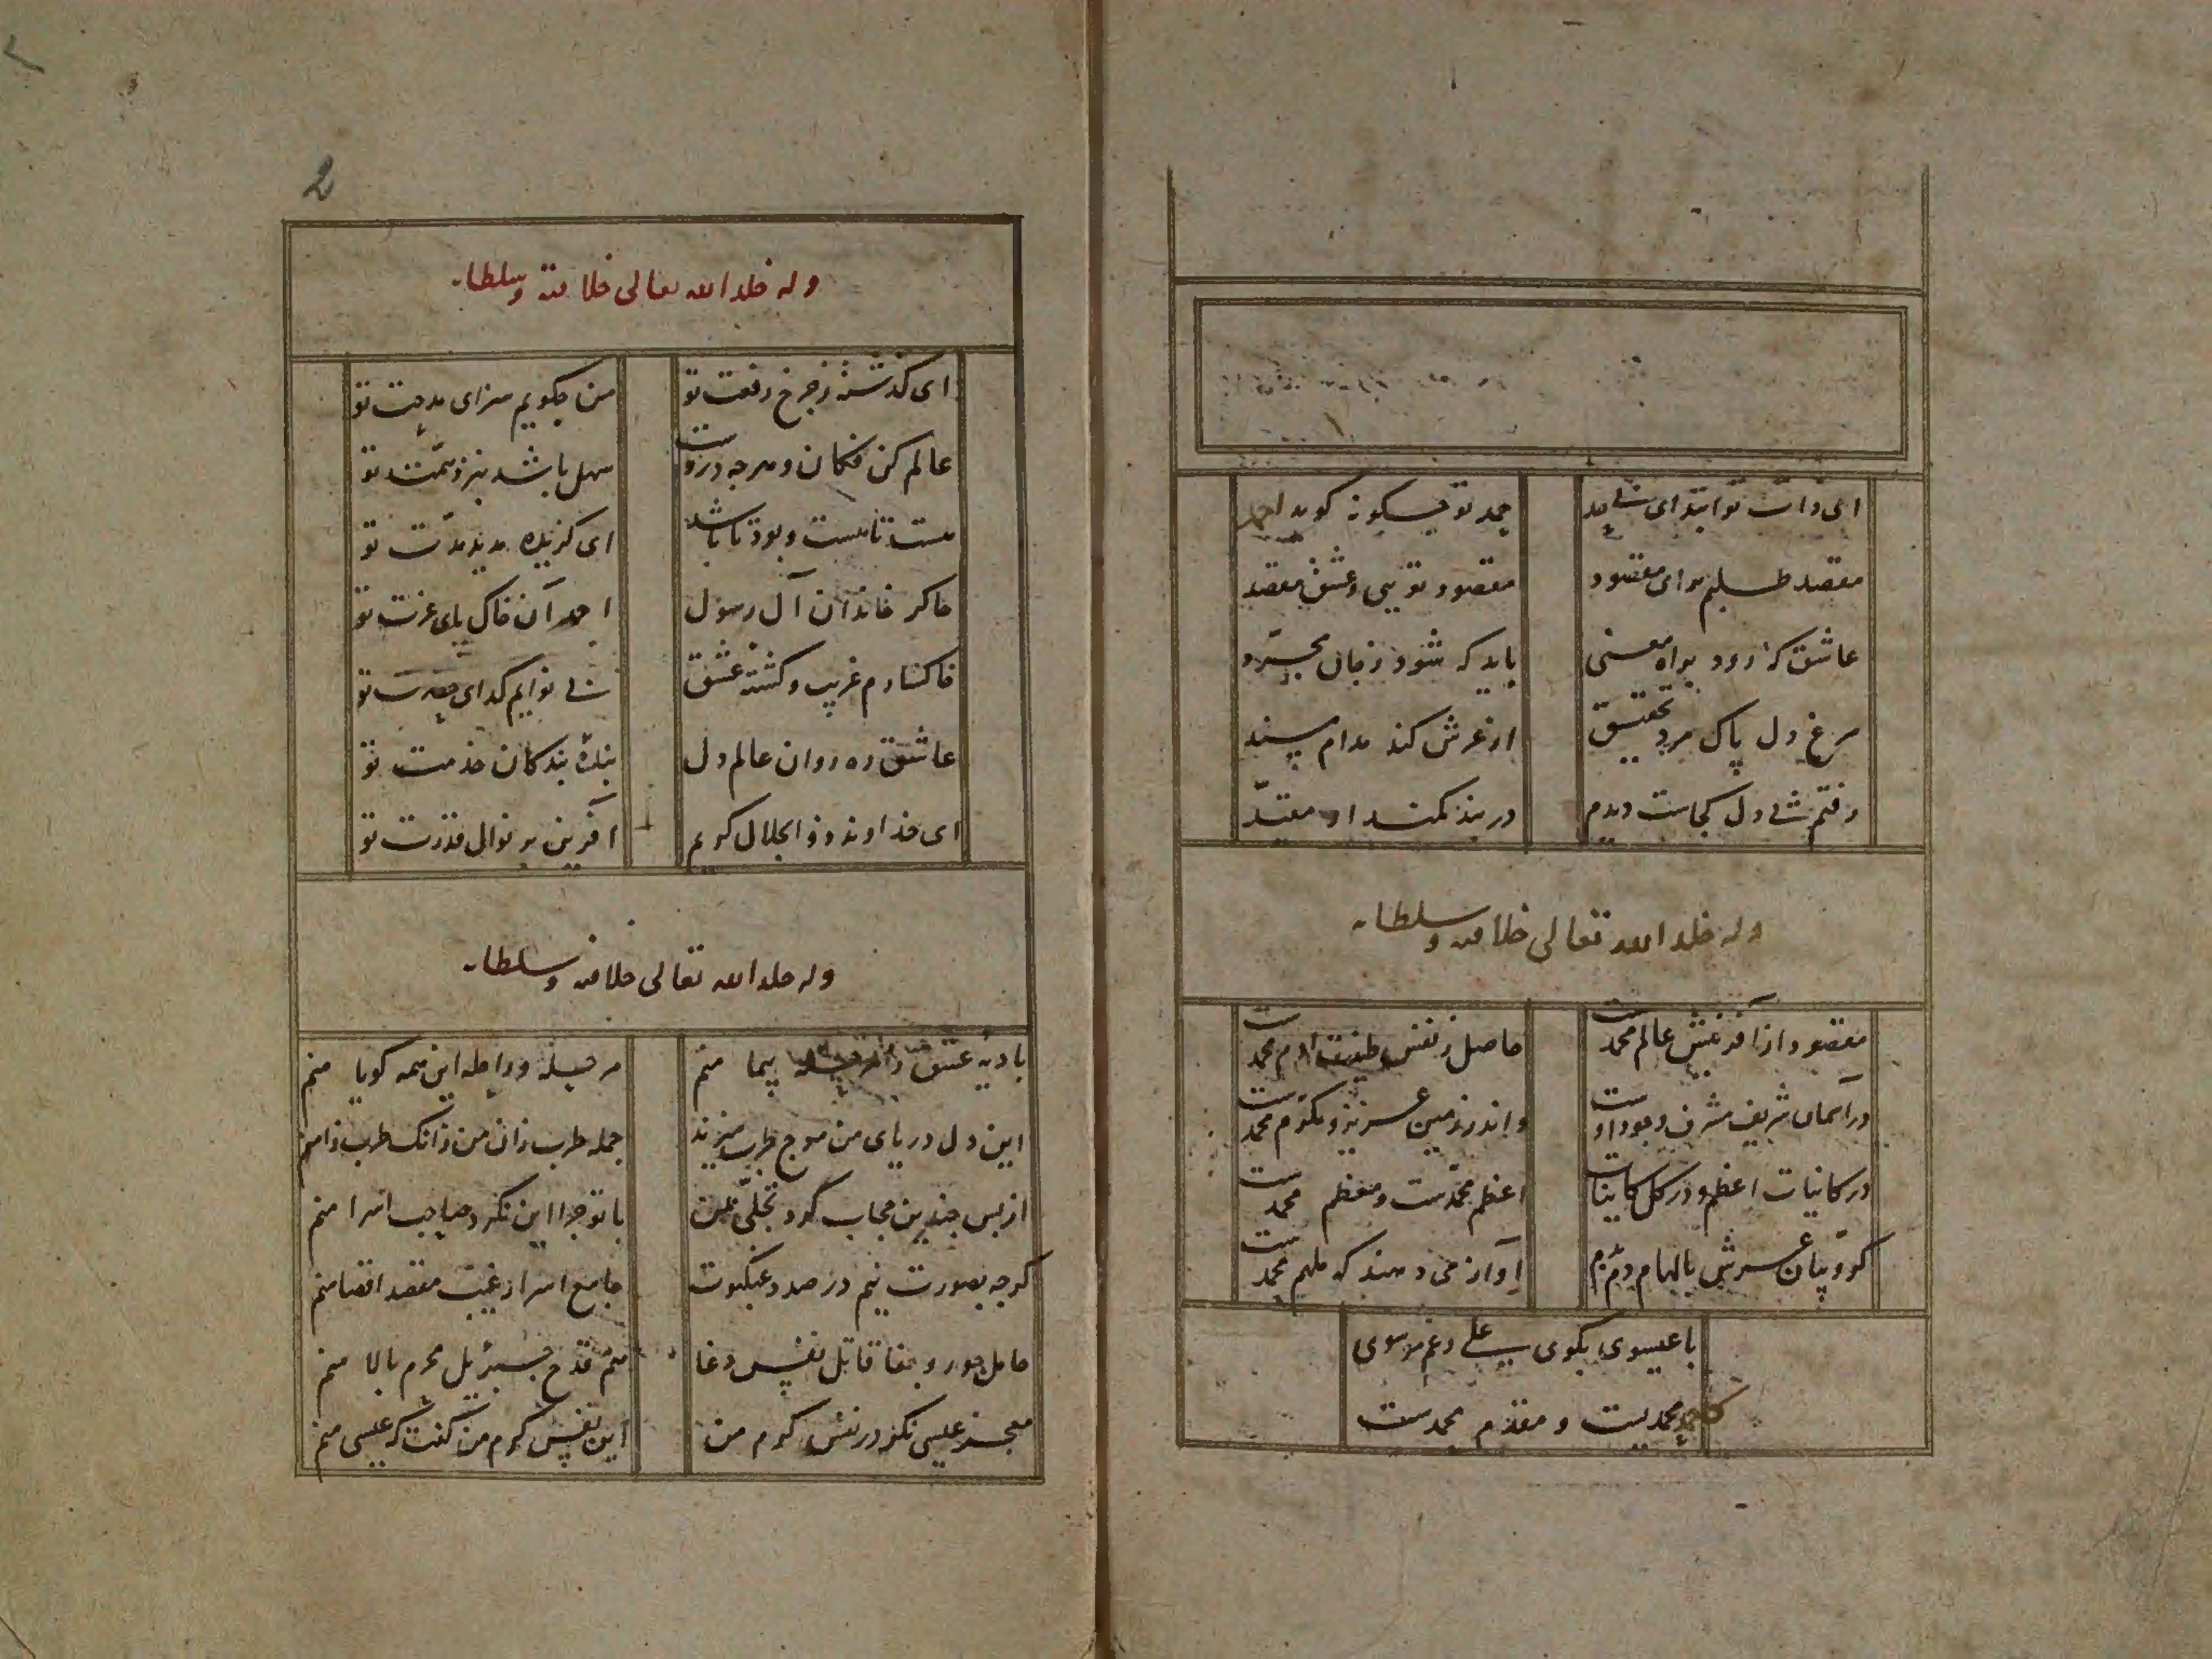 ای ذات تو ابتدای بی حد حمد تو چگونه گوید احمد
مقصد طلبم برای مقصود مقصود تویی و عشق مقصد
عاشق که رود براه معنی باید که شود ز جان مجرد
مرغ دل پاک مرد تحقیق از عرش کند مدام
رفتم دل کجاست دیدم در بند کمند او مقید
وله خلد الله تعالی خلافته وسلطانه
مقصود از آفرینش عالم محمدست حاصل ز نفس طینت آدم محمدست
در آسمان شریف مشرف وجود اوست و اندر زمین عزیز و مکرم محمدست
در کاینات اعظم و در کل کاینات اعظم محمدست و معظم محمدست
کروبیان عرش بالهام دم بدم آواز می دهند که ملهم محمدست
با عیسوی بگوی علی رغم موسوی
محمدست و مقدم محمدست
2
وله خلد الله تعالی خلافته وسلطانه
ای گذشته ز چرخ رفعت تو من چگویم سزای مدحت تو
عالم کن فکان و هرچه دروست سهل باشد بنزد همت تو
هست تا هست و بود تا باشد ای گزیده مدید مدت تو
چاکر خاندان آل رسول احمد آن خاک پای عزت تو
خاکسارم غریب و کشته عشق بی نوایم گدای حضرت تو
عاشق ره روان عالم دل بنده بندکان خدمت تو
ای خداوند ذو الجلال کریم آفرین بر نوال قدرت تو
وله خلد الله تعالی خلافته وسلطانه
بادیه عشق را پیما منم مرحله و راحله این همه گویا منم
این دل دریای من موج طرب میزند جمله طرب زان من زانک طرب زا منم
از پس چندین حجاب کرد تجلی با تو چرا این نکرد صاحب اسرا منم
گرچه بصورت نیم در صدد عنکبوت جامع اسرار غیب مقصد اقصا منم
حامل جور و جفا قاتل نفس دغا هم قدح جبرئیل محرم بالا منم
معجز عیسی نگر در نفس گرم من این نفس گرم من گفت که عیسی منم